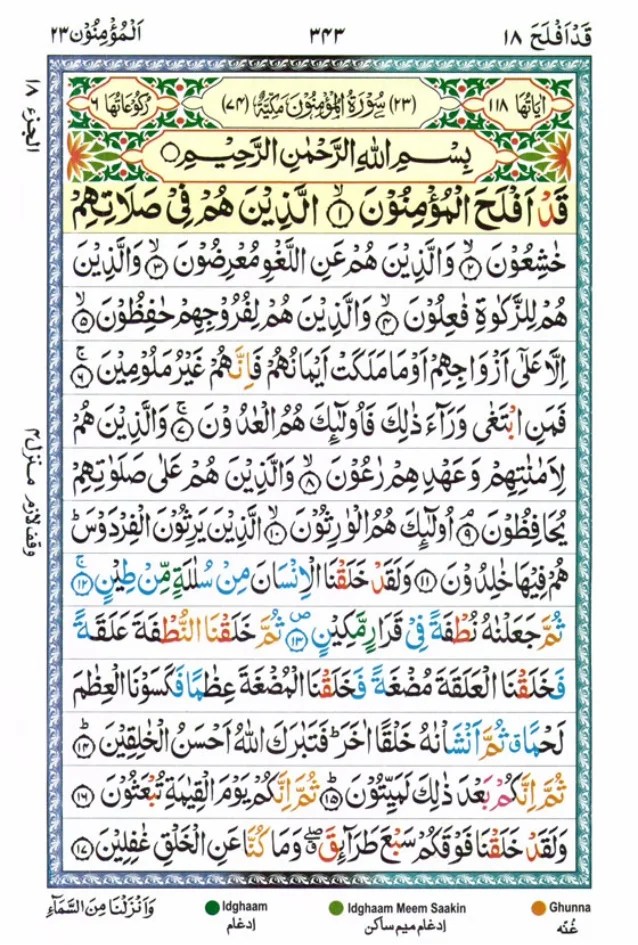 قَدْ اَفْلَحَ ١٨
٣٤٣
اَلْمُؤْمِنُوْن ٢٣
الجزء ١٨
اٰيَاتُهَا ١١٨
(٢٣) سُوْرَةُ الْمُؤْمِنُوْنَ مَكِّيَّةٌ (٧٤)
رُكُوْعَاتُهَا ٦
بِسْمِ اللّٰهِ الرَّحْمٰنِ الرَّحِيْمِ
قَدْ اَفْلَحَ الْمُؤْمِنُوْنَ ۙ﴿١﴾ الَّذِيْنَ هُمْ فِيْ صَلَاتِهِمْ
خٰشِعُوْنَ ۙ﴿٢﴾ وَالَّذِيْنَ هُمْ عَنِ اللَّغْوِ مُعْرِضُوْنَ ۙ﴿٣﴾ وَالَّذِيْنَ
هُمْ لِلزَّكٰوةِ فٰعِلُوْنَ ۙ﴿٤﴾ وَالَّذِيْنَ هُمْ لِفُرُوْجِهِمْ حٰفِظُوْنَ ۙ﴿٥﴾
اِلَّا عَلٰٓى اَزْوَاجِهِمْ اَوْ مَا مَلَكَتْ اَيْمَانُهُمْ فَاِنَّهُمْ غَيْرُ مَلُوْمِيْنَ ۚ﴿٦﴾
فَمَنِ ابْتَغٰى وَرَآءَ ذٰلِكَ فَاُولٰٓئِكَ هُمُ الْعٰدُوْنَ ۚ﴿٧﴾ وَالَّذِيْنَ هُمْ
لِاَمٰنٰتِهِمْ وَعَهْدِهِمْ رٰعُوْنَ ۙ﴿٨﴾ وَالَّذِيْنَ هُمْ عَلٰى صَلَوٰتِهِمْ
يُحَافِظُوْنَ ۘ﴿٩﴾ اُولٰٓئِكَ هُمُ الْوٰرِثُوْنَ ۙ﴿١٠﴾ الَّذِيْنَ يَرِثُوْنَ الْفِرْدَوْسَ ؕ
هُمْ فِيْهَا خٰلِدُوْنَ ﴿١١﴾ وَلَقَدْ خَلَقْنَا الْاِنْسَانَ مِنْ سُلٰلَةٍ مِّنْ طِيْنٍ ۚ﴿١٢﴾
ثُمَّ جَعَلْنٰهُ نُطْفَةً فِيْ قَرَارٍ مَّكِيْنٍ ۪﴿١٣﴾ ثُمَّ خَلَقْنَا النُّطْفَةَ عَلَقَةً
فَخَلَقْنَا الْعَلَقَةَ مُضْغَةً فَخَلَقْنَا الْمُضْغَةَ عِظٰمًا فَكَسَوْنَا الْعِظٰمَ
لَحْمًا ۗ ثُمَّ اَنْشَاْنٰهُ خَلْقًا اٰخَرَ ؕ فَتَبٰرَكَ اللّٰهُ اَحْسَنُ الْخٰلِقِيْنَ ؕ﴿١٤﴾
ثُمَّ اِنَّكُمْ بَعْدَ ذٰلِكَ لَمَيِّتُوْنَ ؕ﴿١٥﴾ ثُمَّ اِنَّكُمْ يَوْمَ الْقِيٰمَةِ تُبْعَثُوْنَ ﴿١٦﴾
وَلَقَدْ خَلَقْنَا فَوْقَكُمْ سَبْعَ طَرَآئِقَ ۖ وَمَا كُنَّا عَنِ الْخَلْقِ غٰفِلِيْنَ ﴿١٧﴾
وقف لازم منزل ٤
وَاَنْزَلْنَا مِنَ السَّمَآءِ
Idghaam
إدغام
Idghaam Meem Saakin
إدغام ميم ساكن
Ghunna
غُنّه